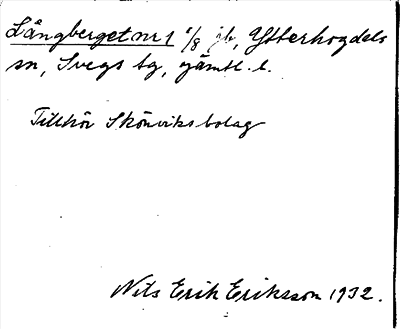 Långberget nr 1 1/8 jb, Ytterhogdals
sn, Svegs tg, Jämtl. l.
Tillhör Skönviks bolag
Nils Erik Eriksson 1932.